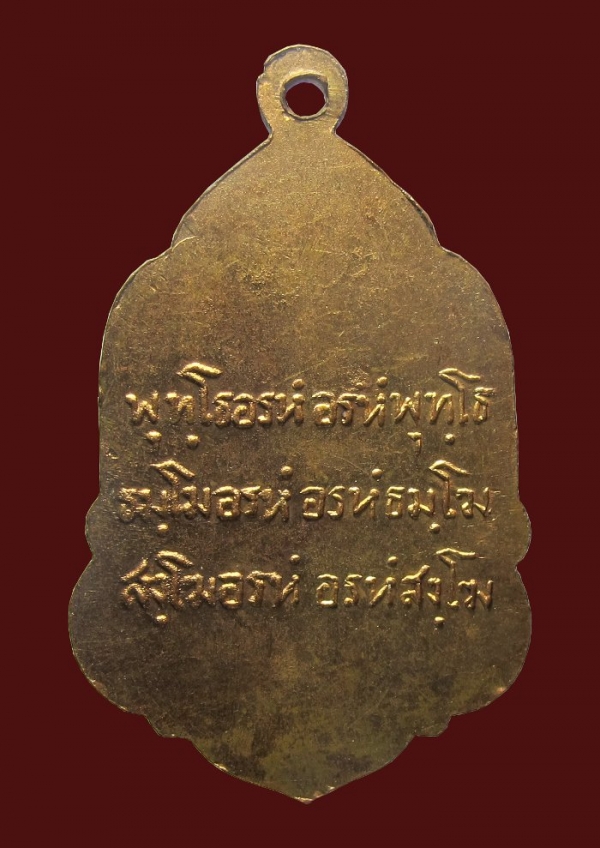 พุทฺโธอรหํ อรหํพุทฺโธ
ธมฺโมอรหํ อรหํธมฺโม
สงฺโฆอรหํ อรหํสงฺโฆ